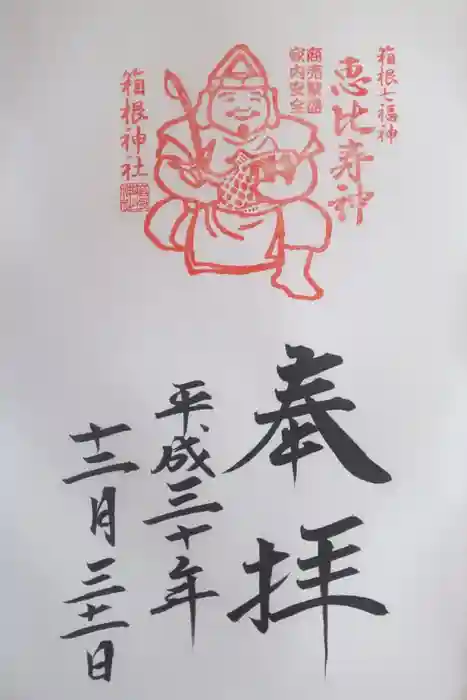 箱根七福神
恵比寿神
商売繁盛
家内安全
箱根神社
奉拝
平成三十年
十二月三十一日